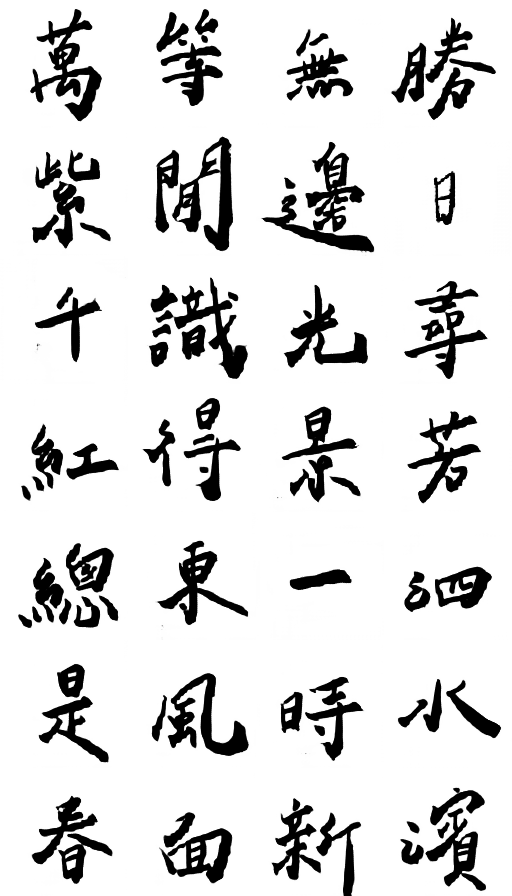 勝日尋若泗水濱
無邊光景一時新
等閒識得東風面
萬紫千紅總是春